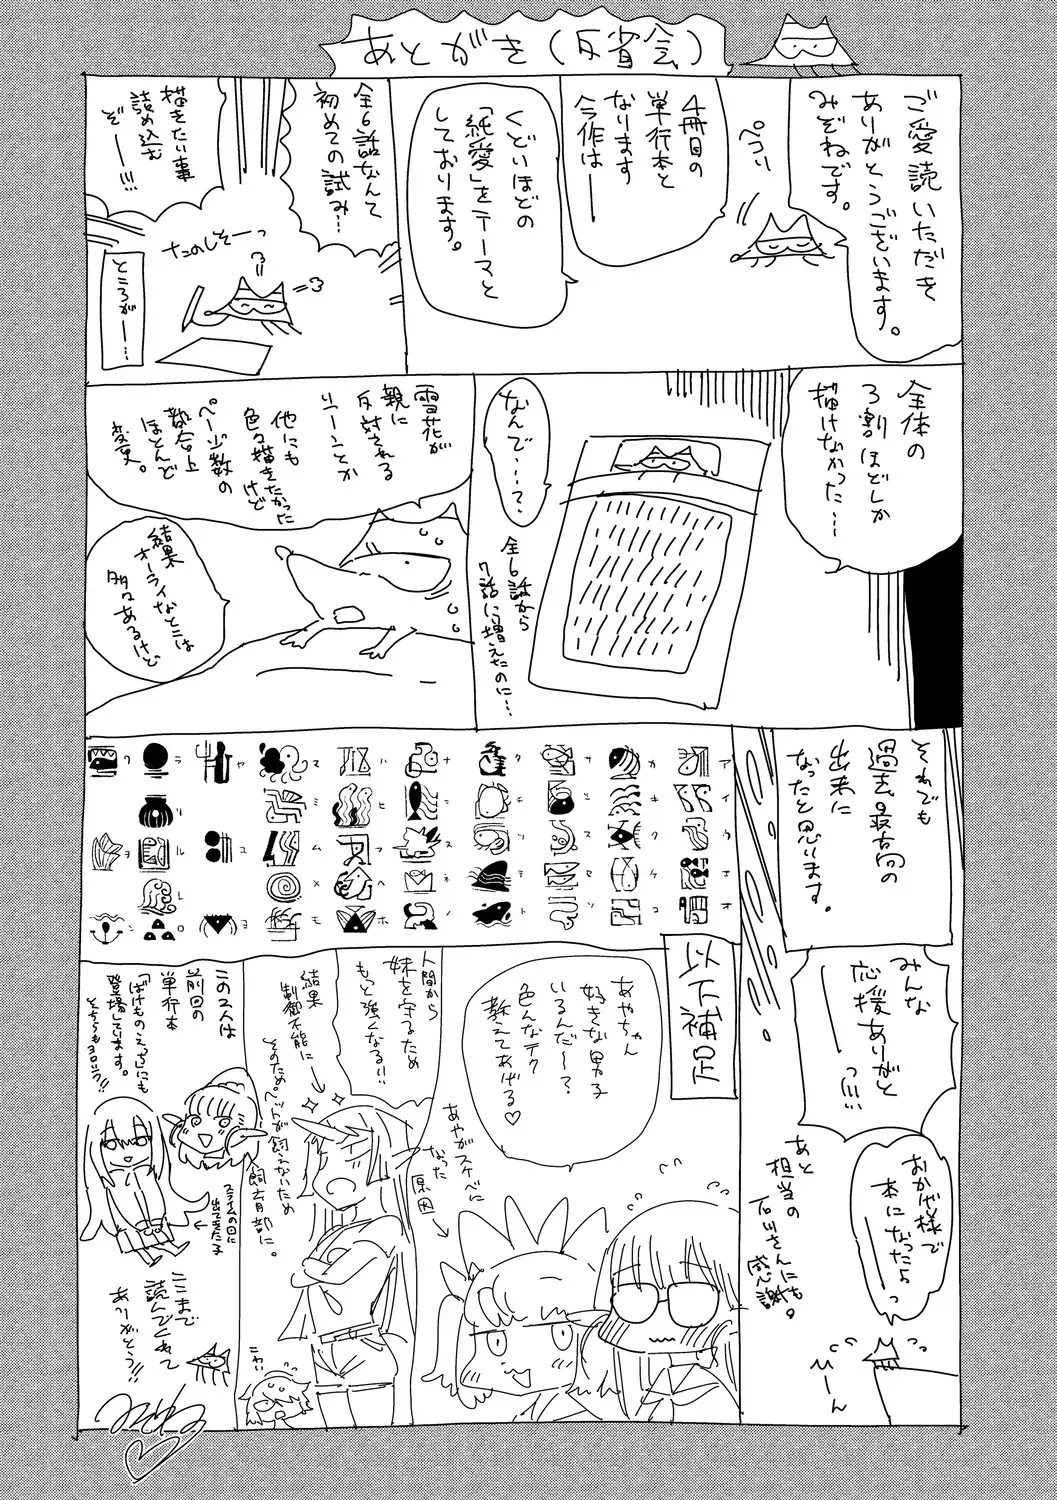 あとがき（反省会）
ご愛読いただき
ありがとうございます。
みぞねです。
ペコリ
4冊目の
単行本と
なります
今作は――
くどいほどの
「純愛」をテーマと
しております。
全6話なんて
初めての試み…
描きたい事
詰め込む
ぞ――!!!
たのしそーっ
ところが――…
全体の
3割ほどしか
描けなかった…
なんで…‥?
全6話から
7話に増えたのに…
雪花が
親に
反対される
シーンとか
他にも
色々描きたかった
けど
ページ数の
都合上
ほとんど
変更。
結果
オーライなとこは
多々あるけど
それでも
過去最高の
出来に
なったと思います。
みんな
応援ありがと
――っ!!!!
おかげ様で
本になったよ
――っ
あと
担当の
石川さんにも
感謝。
ひーん
ア
イ
ウ
オ
カ
キ
ク
ケ
コ
サ
ス
セ
ソ
テ
ト
ナ
ノ
ハ
ヒ
フ
ヘ
ホ
ミ
ム
メ
モ
ヤ
ユ
ヨ
ラ
ル
レ
以下補足
あやちゃん
好きな男子
いるんだ〜?
色んなテク
教えてあげる♡
あやがスケベに
なった
原因
人間から
妹を守るため
もっと強くなる!!
結果
制御不能に
飼育部に。
ニャい
この2人は
前回の
単行本
「ばけものえっち」にも
登場しています。
そちらもヨロシク!!
スライムの回に
出てきた子
ここまで
読んでくれて
ありがとう!!
みぞね